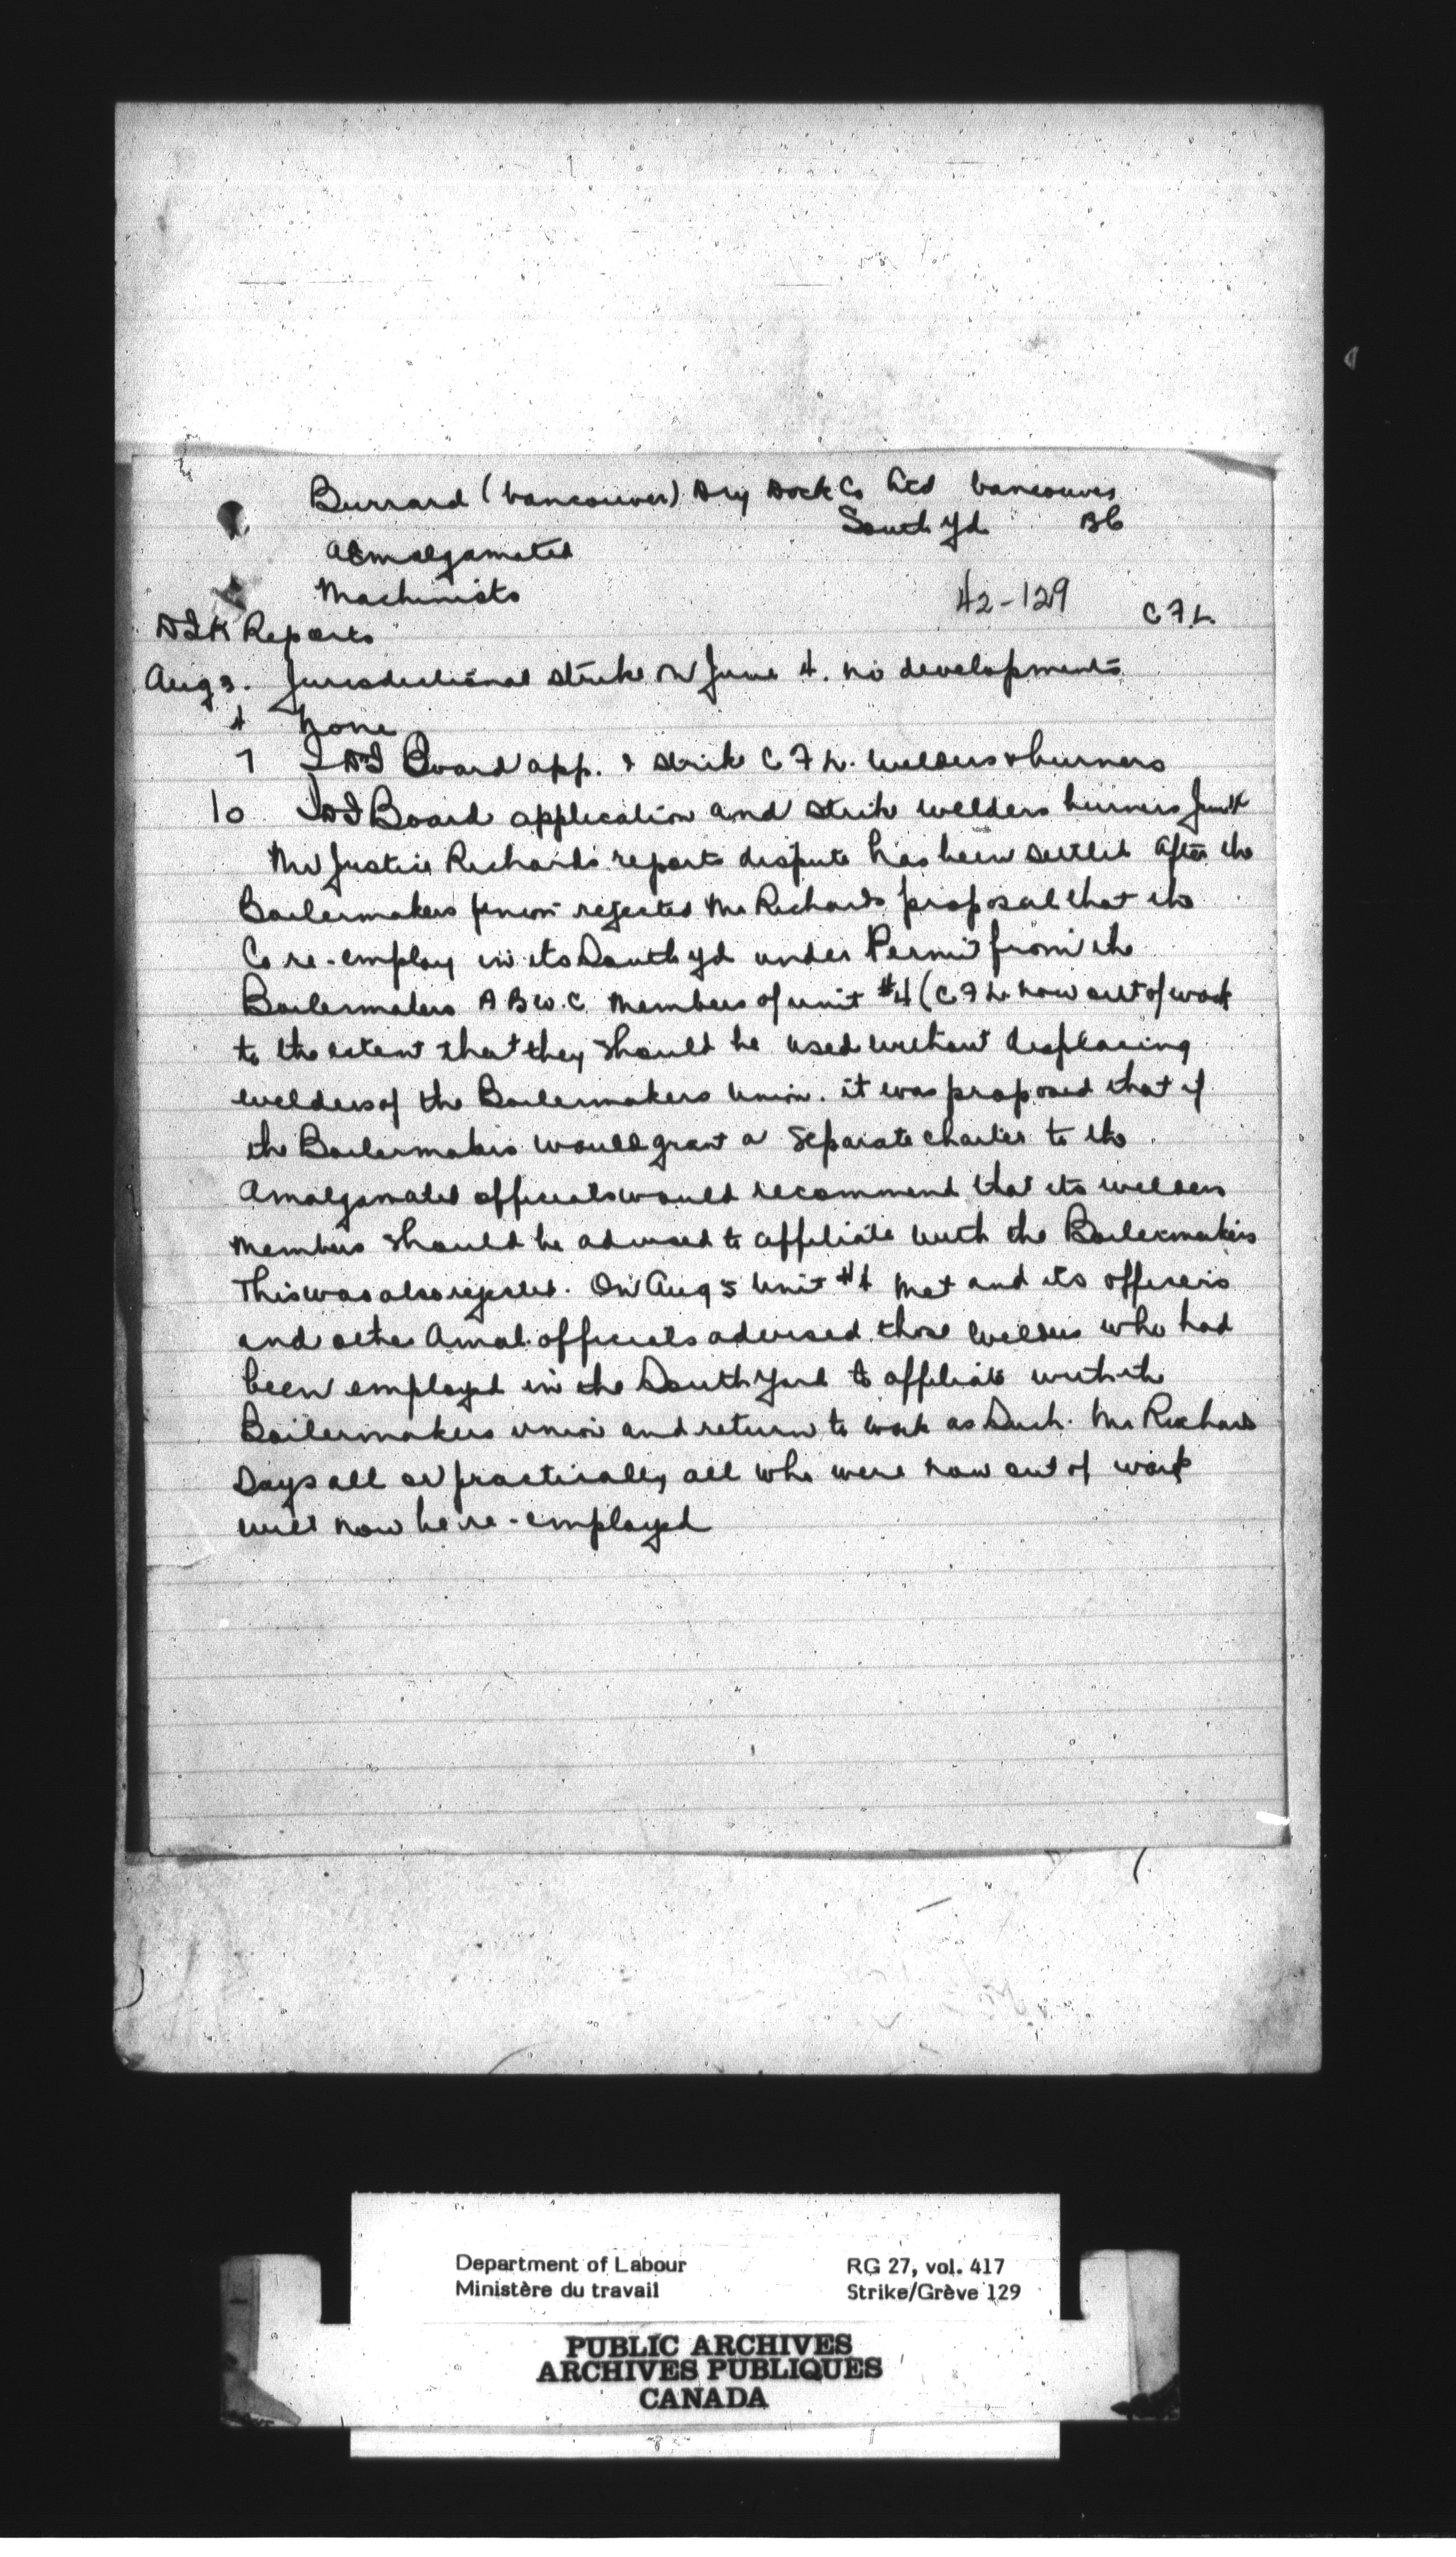 Burrard (Vancouver) Dry Dock Co Ltd Vancouver
South Yd BC
Amalgamated
Machinists
42-129 CFL
Reports
Aug 3. Jurisdictional strike on June 4. no developments
4 none
7 IDI Board app. & strike C F L. welders & burners
10 IDI Board application and strike welders burners June
Mr Justice Richards reports dispute has been settled After the
Boilermakers union rejected Mr Richards proposal that the
Co re-employ in its South yd under Permit from the
Boilermakers A B W. C members of unit #4 (C F L now out of work
to the extent that they should be used without displacing
welders of the Boilermakers Union. it was proposed that if
the Boilermakers would grant a separate charter to the
Amalgamated officials would recommend that its welders
members should be advised to affiliate with the Boilermakers
This was also rejected. On Aug 5 Unit #4 met and its officers
and other Amal. officials advised those welders who had
been employed in the South Yard to affiliate with the
Boilermakers union and return to work as such. Mr Richards
says all or practically all who were now out of work
will now be re-employed
Department of Labour RG 27, vol. 417
Ministère du travail Strike/Grève 129
PUBLIC ARCHIVES
ARCHIVES PUBLIQUES
CANADA